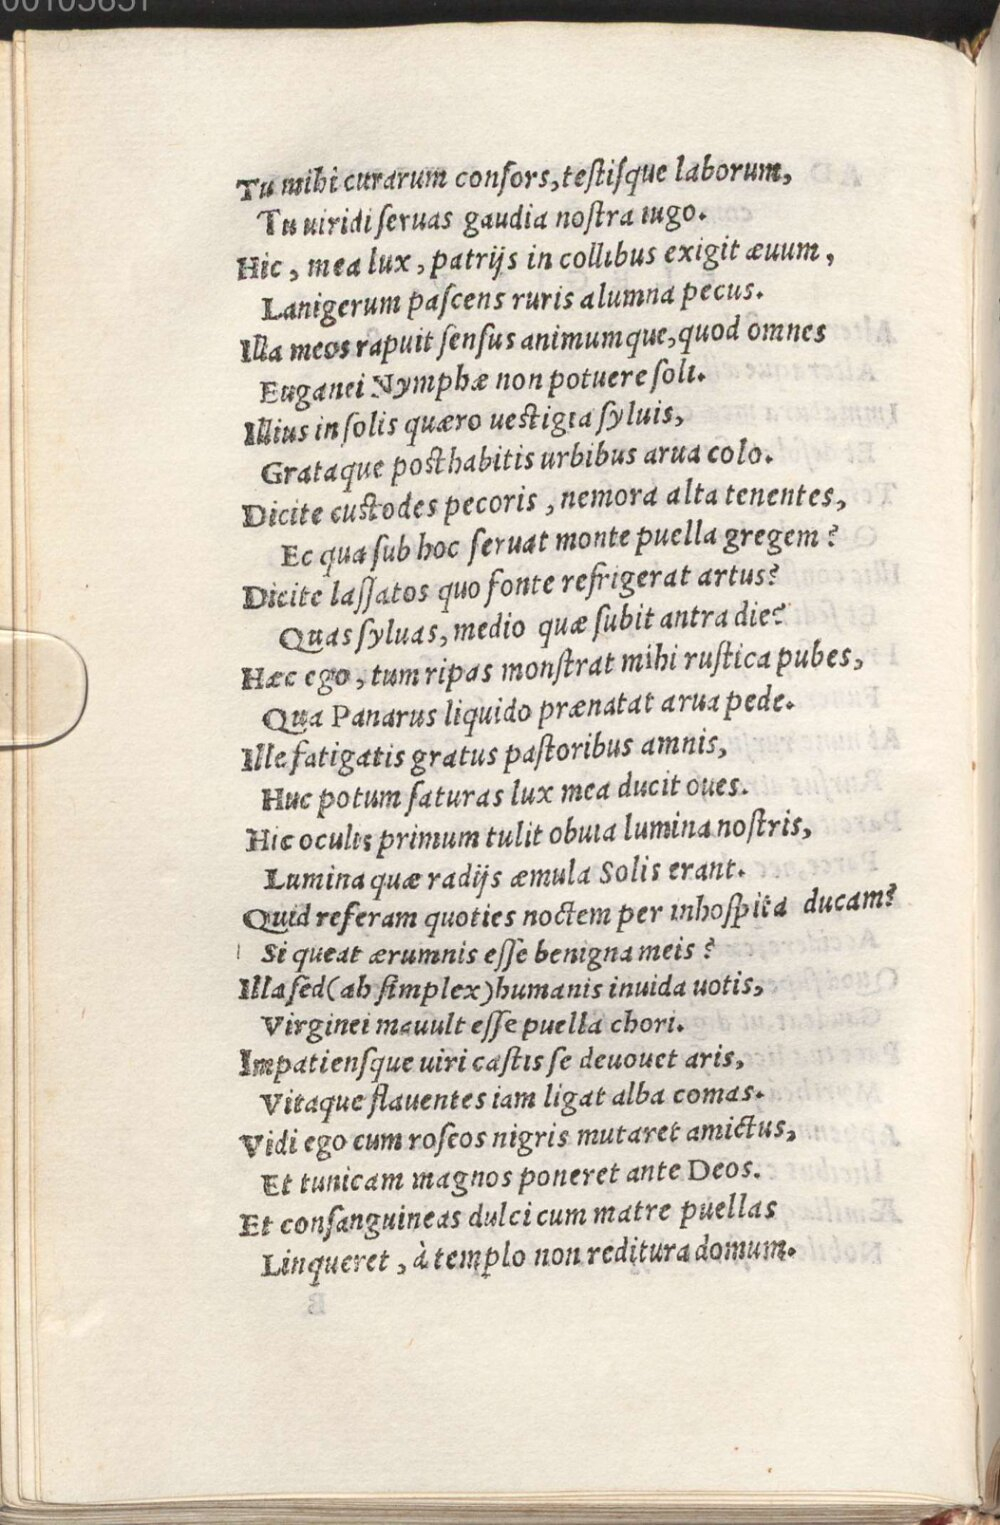 Tu mihi curarum consors, testisque laborum,
Tu uiridi seruas gaudia nostra iugo.
Hic, mea lux, patrijs in collibus exigit æuum,
Lanigerum pascens ruris alumna pecus.
Illa meos rapuit sensus animumque, quod omnes
Euganei Nymphæ non potuere soli.
Illius in solis quæro uestigia syluis,
Grataque posthabitis urbibus arua colo.
Dicite custodes pecoris, nemora alta tenentes,
Ec qua sub hoc seruat monte puella gregem?
Dicite lassatos quo fonte refrigerat artus?
Quas syluas, medio quæ subit antra die?
Hæc ego, tum ripas monstrat mihi rustica pubes,
Qua Panarus liquido prænatat arua pede.
Ille fatigatis gratus pastoribus amnis,
Huc potum saturas lux mea ducit oues.
Hic oculis primum tulit obuia lumina nostris,
Lumina quæ radijs æmula Solis erant.
Quid referam quoties noctem per inhospita ducam?
Si queat ærumnis esse benigna meis?
Illa sed (ah simplex) humanis inuida uotis,
Virginei mauult esse puella chori.
Impatiensque uiri castis se deuouet aris,
Vitaque flauentes iam ligat alba comas.
Vidi ego cum roseos nigris mutaret amictus,
Et tunicam magnos poneret ante Deos.
Et consanguineas dulci cum matre puellas
Linqueret, à templo non reditura domum.